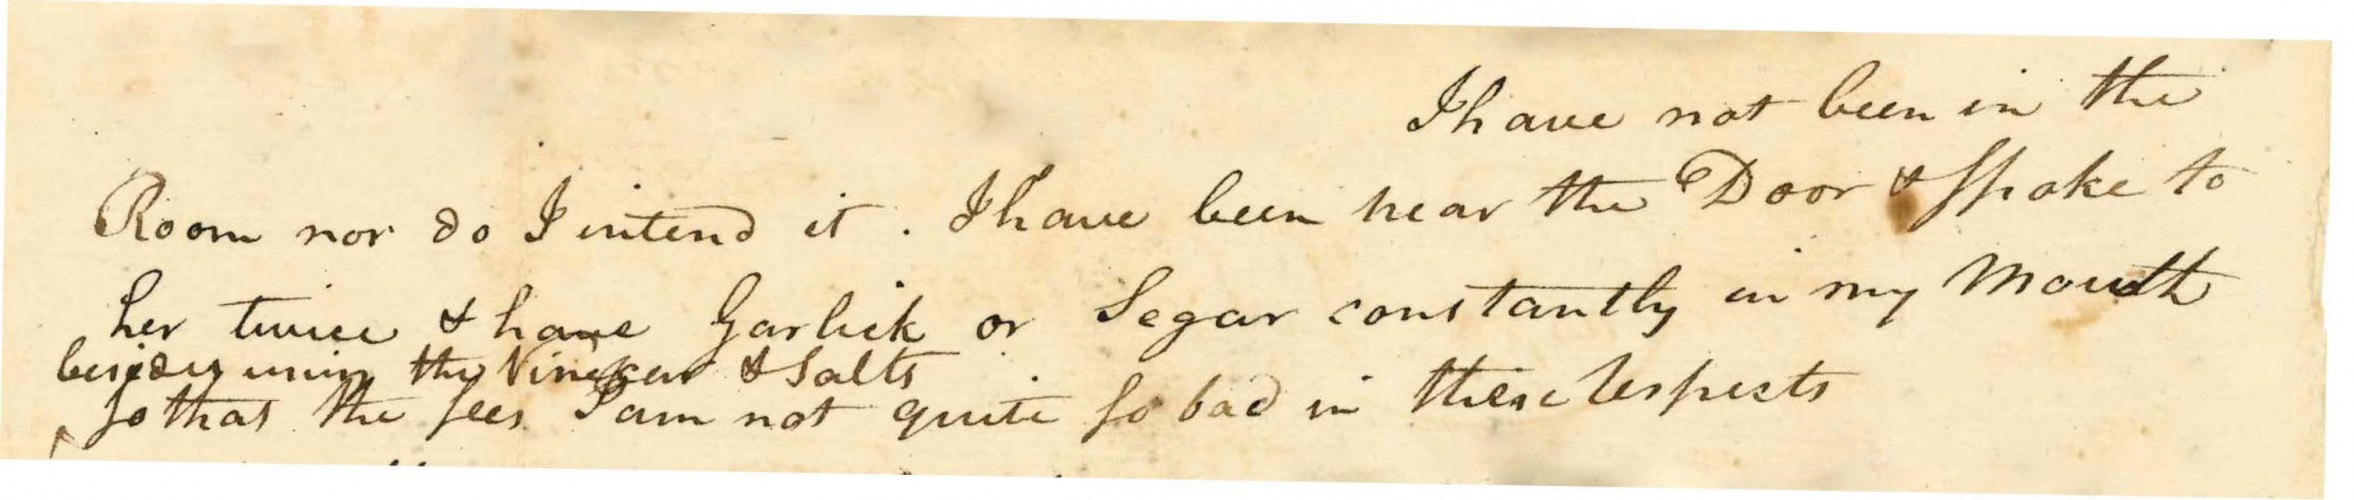 I have not been in the
Room nor do I intend it. I have been near the Door & Spoke to
her twice & have Garlick or Segar constantly in my Mouth
besides using the Vinegar & Salts
so that the sees I am not quite so bad in these respects